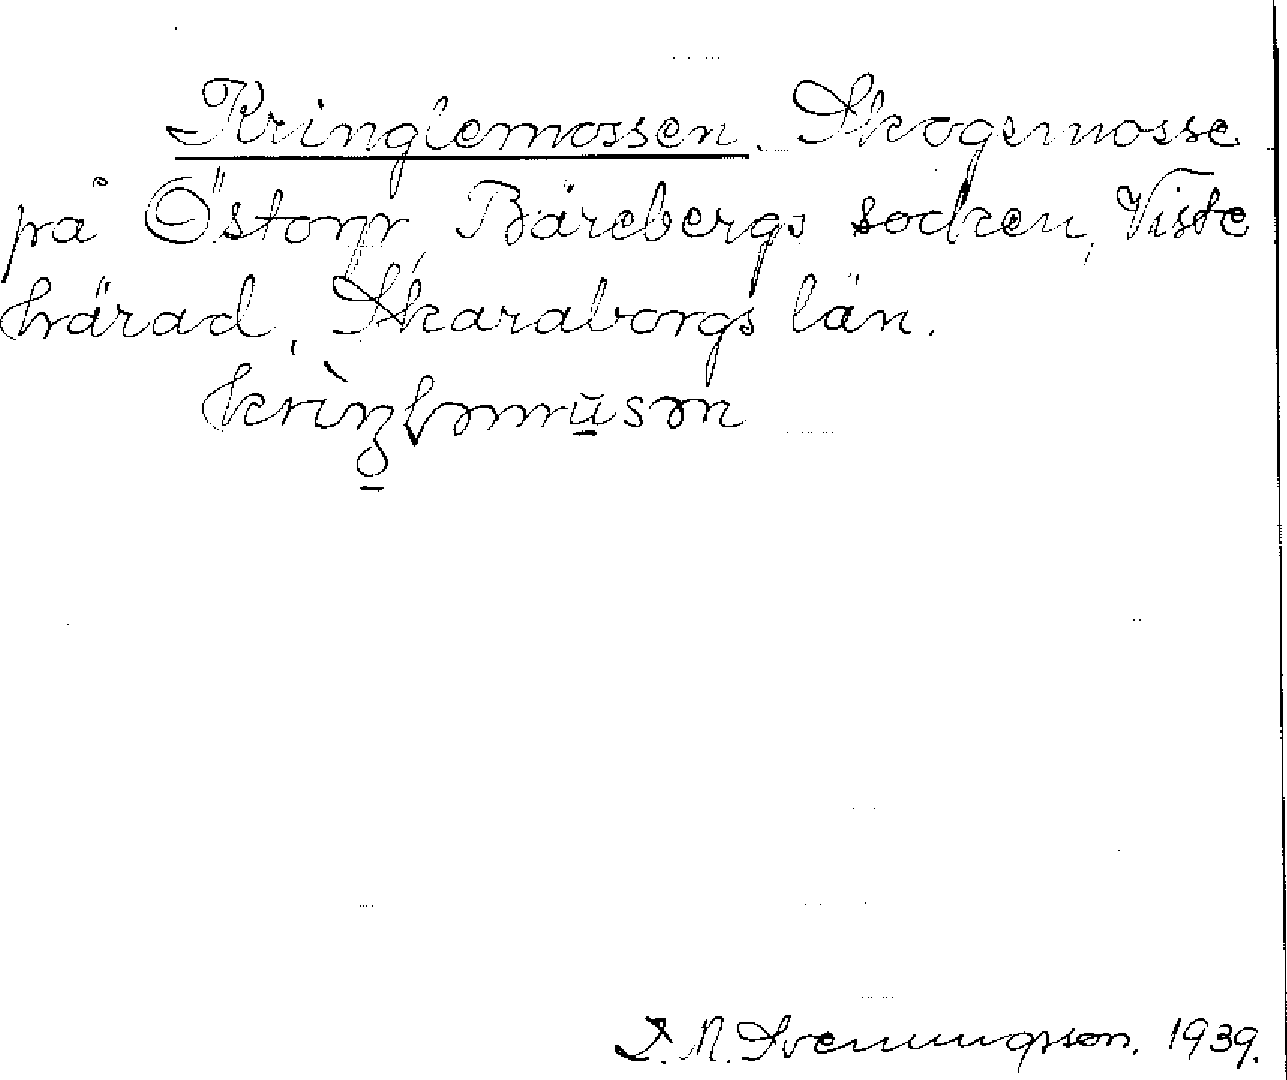 Kringlemossen. Skogsmosse
på Östorp, Bärebergs socken, Viste
härad, Skaraborgs län.
J. N. Svenungsson. 1939.